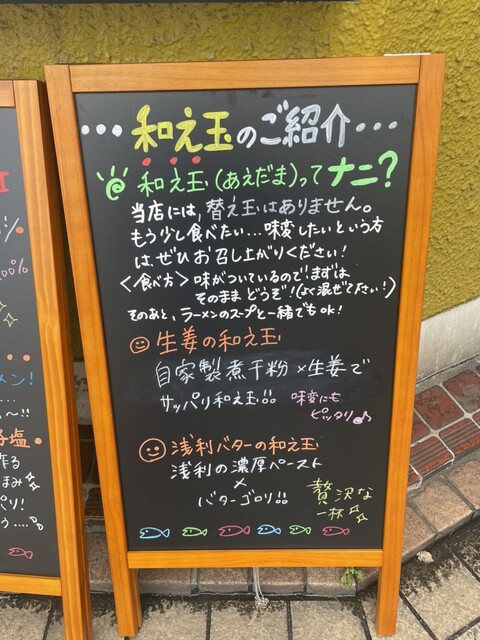 ・・・和え玉のご紹介・・・
和え玉(あえだま)ってナニ?
当店には、替え玉はありません。
もう少し食べたい…味変したいという方
は、ぜひお召し上がりください!
〈食べ方〉味がついているので!まずは
そのままどうぞ!(よく混ぜて下さい!)
そのあと、ラーメンのスープと一緒でもOK!
生姜の和え玉
自家製煮干粉×生姜で
サッパリ和え玉!!
味変にも
ピッタリ♪
浅利バターの和え玉
浅利の濃厚ペースト
×
バターゴロリ!!
贅沢な
一杯
00%
メン!
塩
作る
まみ
パリ!
う…♪